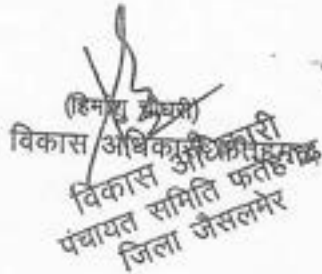 (हिमांशु चौधरी)
विकास अधिकारी फतेहगढ़
विकास अधिकारी
पंचायत समिति फतेहगढ़
जिला जैसलमेर